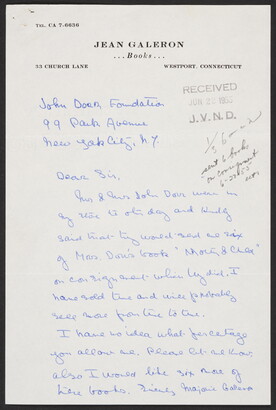 TEL. CA 7-6636
JEAN GALERON
...Books...
33 CHURCH LANE
WESTPORT, CONNECTICUT
RECEIVED
JUN 22
J. V. N. D.
sent 6 books
on consignment
6-22-55
John Door Foundation
99 Park Avenue
New York City, N.Y.
Dear Sir,
Mr & Mrs John Dorr were in
my store the other day and kindly
said that they would send me six
of Mrs. Dorr's books
on consignment which they did. I
have sold two and will probably
sell more from time to time.
I have no idea what percentage
you allow me. Please let me know.
also I would like six more of
these books. Sincerely Marjorie Galeron